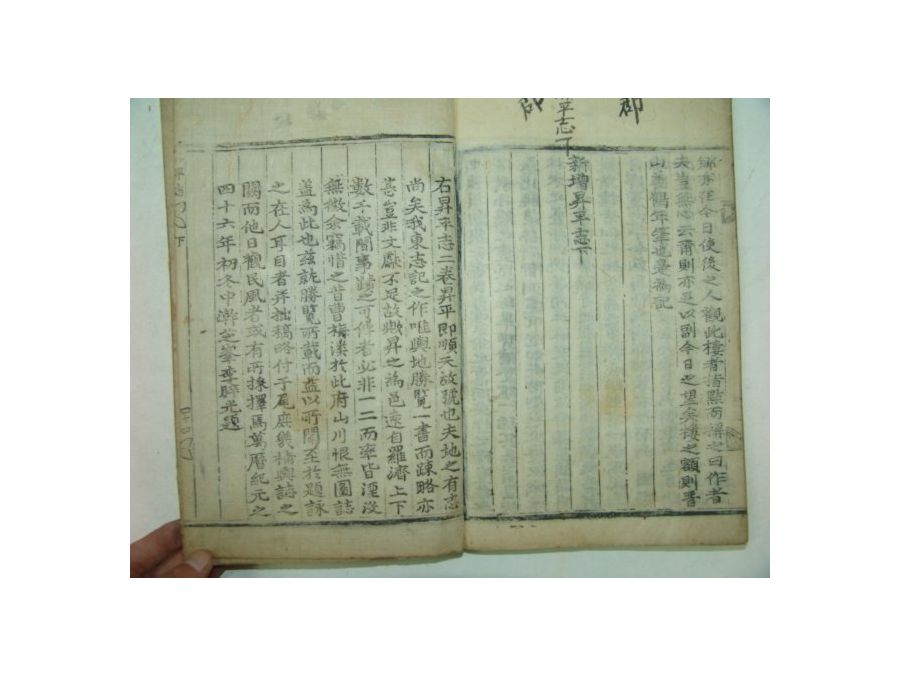 今日使後之人觀此樓者指點而謂之曰作者
夫豈無心云爾則亦足以副今日之望矣樓之額則書
山 鶴年筆也是為記
新增昇平志下
平志下
郡
右昇平志二卷昇平即順天故號也夫地之有志
尚矣我東志記之作唯輿地勝覽一書而踈略亦
甚豈非文獻不足故歟昇之為邑遠自羅濟上下
數千載間事蹟之可傳者必非一二而率皆湮沒
無徵余竊惜之昔曹梅溪於此府山川恨無圖誌
蓋為此也玆就勝覽所載而益以所聞至於題詠
之在人耳目者并拙稿略付于尾庶幾補輿誌之
闕而他日觀民風者或有所採擇焉萬曆紀元之
四十六年初冬中澣芝峯李睟光題